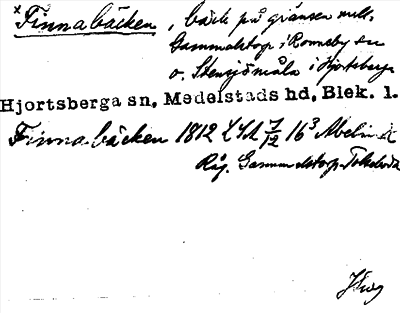 x Finnabäcken, bäck på gränsen mell.
Gammalstorp i Ronneby sn
o. Stensjömåla i Hjortsberga
Hjortsberga sn, Medelstads hd, Blek. l.
Finnabäcken 1812 LSA 7/12 16³ Abelin
Råg. Gammalstorp-